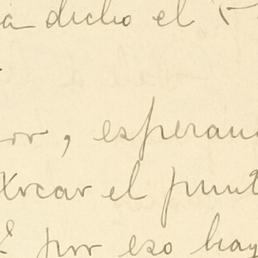 a dicho el
or, esperan
car el punt
por eso hay